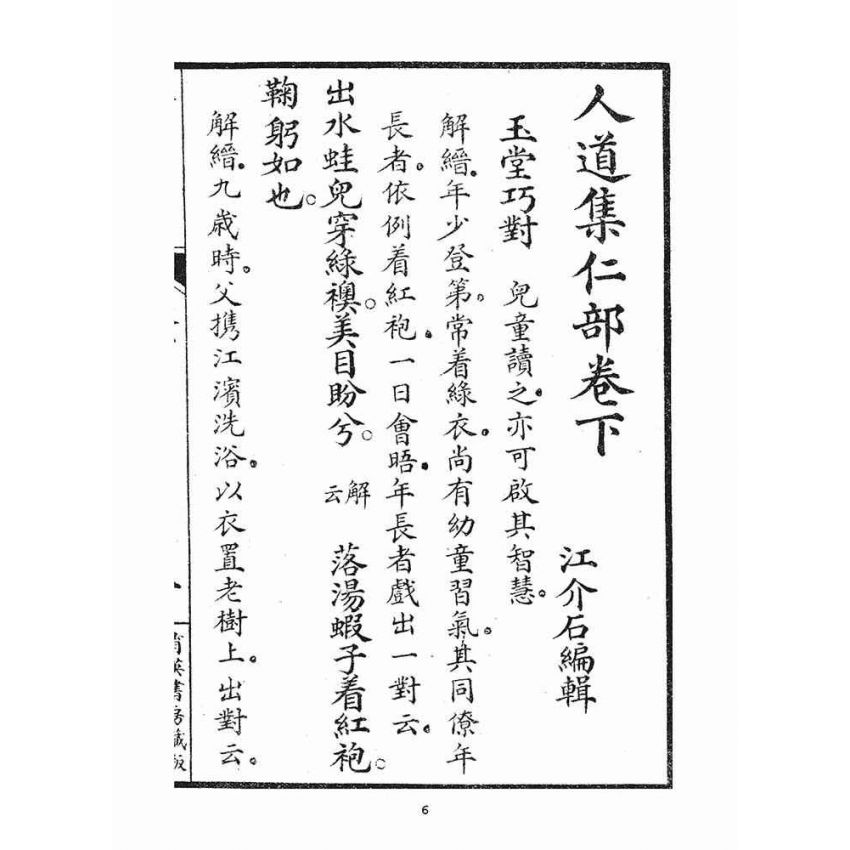 人道集仁部卷下
江介石編輯
玉堂巧對　兒童讀之。亦可啟其智慧。
解縉。年少登第。常着綠衣。尚有幼童習氣。其同僚年
長者。依例着紅袍。一日會晤。年長者戲出一對云。
出水蛙兒穿綠襖。美目盼兮。　解云　落湯蝦子着紅袍。
鞠躬如也。
解縉。九歲時。父携江濱洗浴。以衣置老樹上。出對云。
書房藏版
6